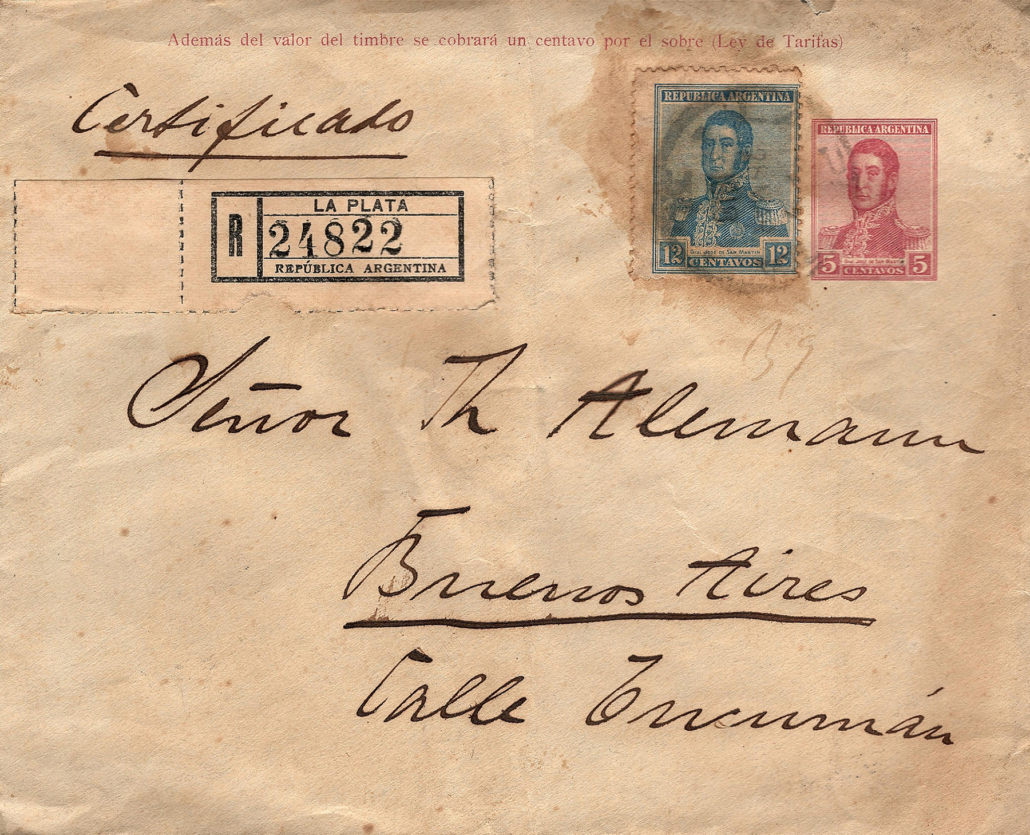 Además del valor del timbre se cobrará un centavo por el sobre (Ley de Tarifas)
Certificado
REPÚBLICA ARGENTINA
12 CENTAVOS 12
GRAL JOSÉ DE SAN MARTÍN
REPÚBLICA ARGENTINA
5 CENTAVOS 5
GRAL JOSÉ DE SAN MARTÍN
R
LA PLATA
24822
REPÚBLICA ARGENTINA
Señor Th Alemann
Buenos Aires
Calle Tucumán